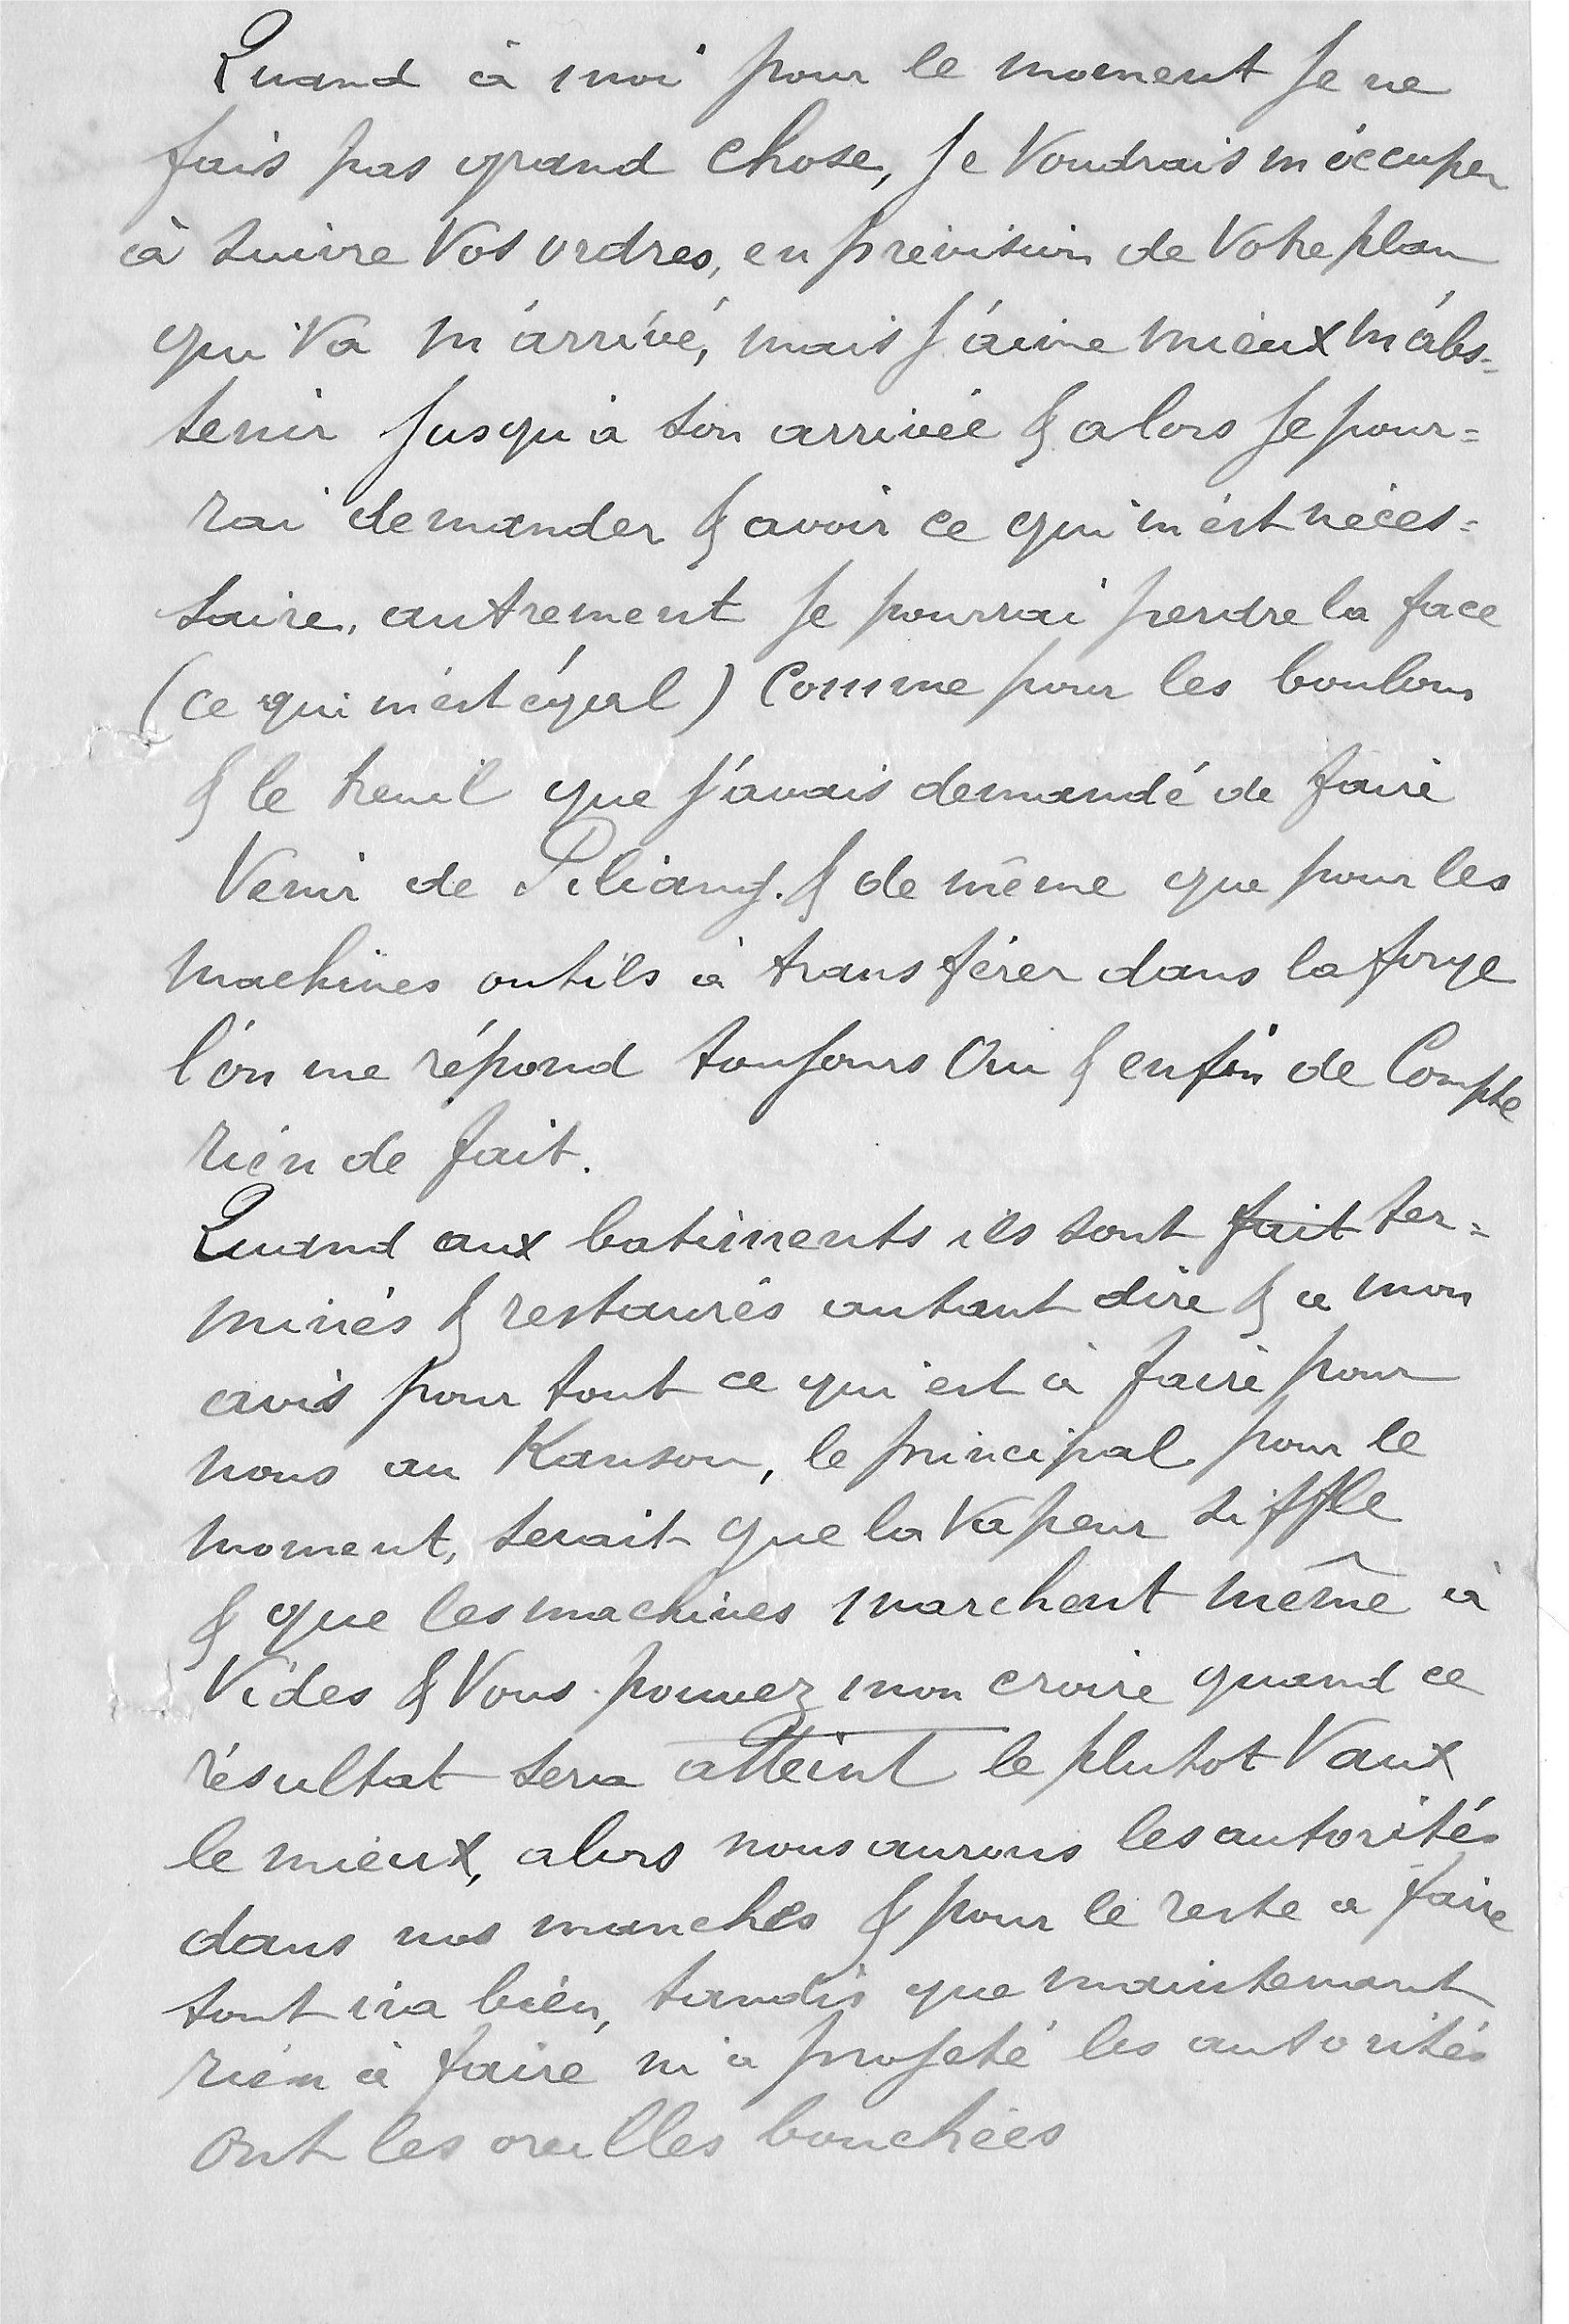 Quand à moi pour le moment je ne
fais pas grand chose, je Voudrais m'occuper
à suivre Vos ordres, en prévision de Votre plan
qui Va m'arrivé, mais j'aime mieux m'abs=
tenir jusqu'a son arrivée & alors je pour=
rai demander & avoir ce qui m'est néces=
saire, autrement je pourrai perdre la face
(ce qui m'est égal) Comme pour les boulons
& le treuil que j'avais demandé de faire
Venir de Piliang. & de même que pour les
machines outils à transférer dans la forge
l'on me répond toujours Oui & enfin de Compte
rien de fait.
Quand aux batiments ils sont fait ter=
minés & restaurés autant dire & a mon
avis pour tout ce qui est à faire pour
nous au Kansou, le principal pour le
moment, serait que la Vapeur siffle
& que les machines marchent même à
Vides & Vous pouvez mon croire quand ce
résultat sera atteint le plutot Vaux
le mieux, alors nous aurons les autorités
dans nos manches & pour le reste a faire
tout ira bien, tandis que maintenant
rien à faire ni a projeté les autorités
ont les oreilles bouchées